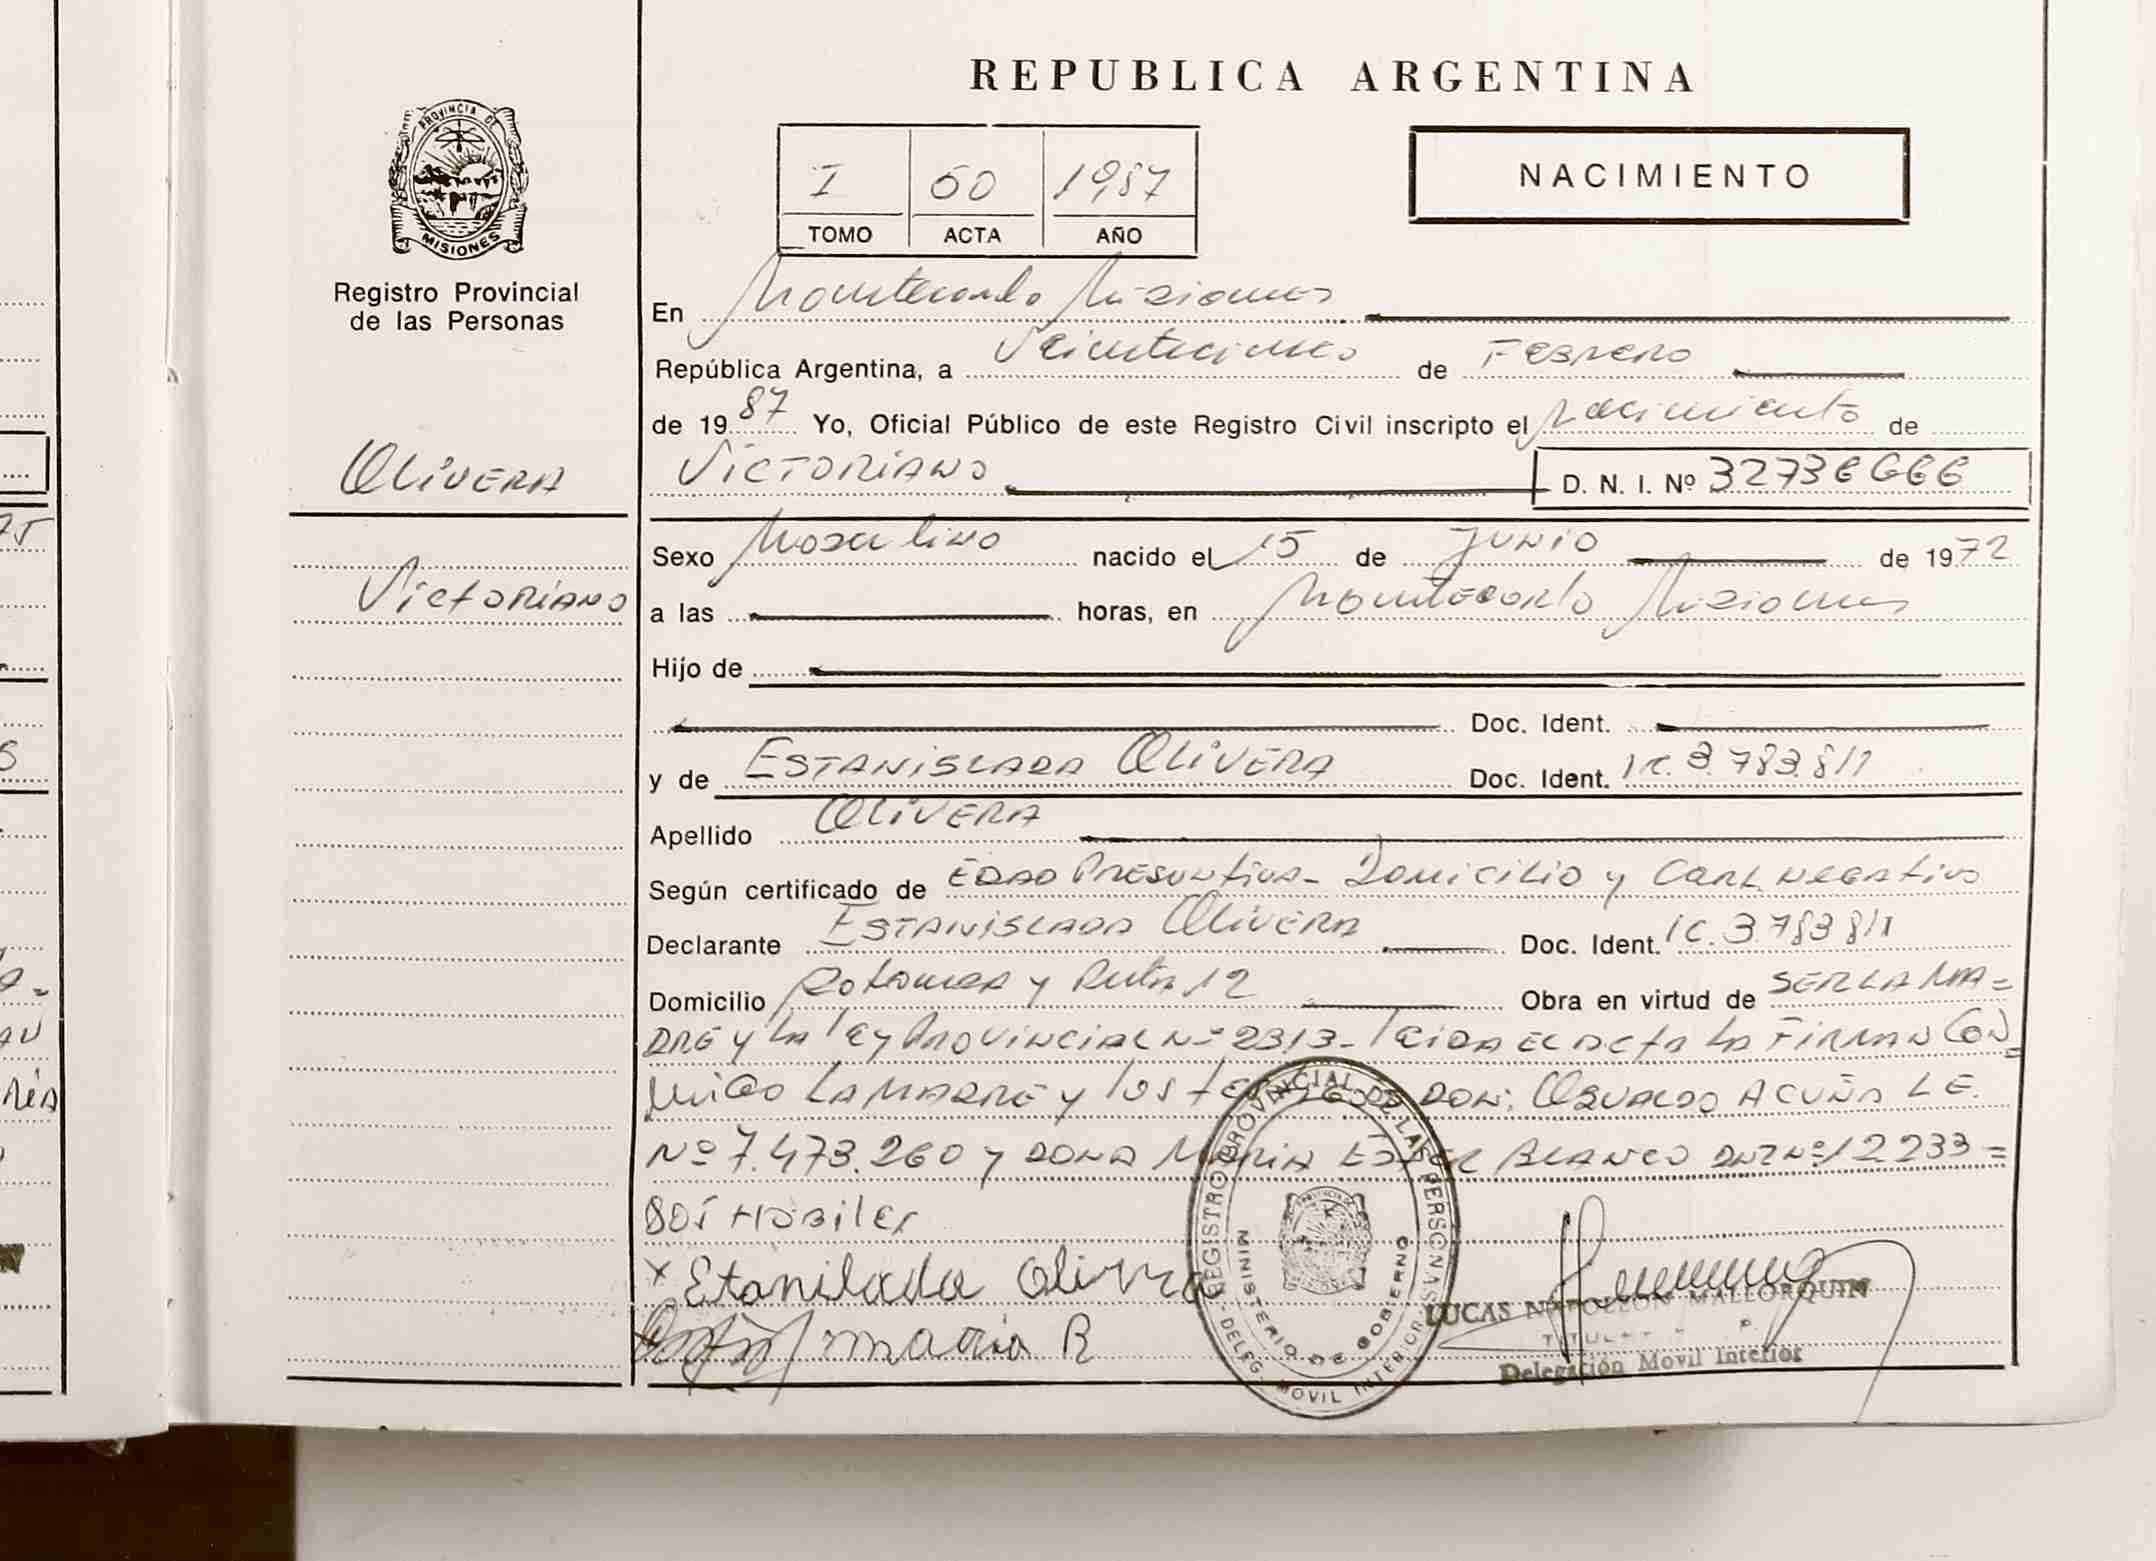 REPUBLICA ARGENTINA
PROVINCIA DE
MISIONES
Registro Provincial
de las Personas
I 60 1987
TOMO ACTA AÑO
NACIMIENTO
En Montecarlo Misiones
República Argentina, a Veinticinco de Febrero
de 1987 Yo, Oficial Público de este Registro Civil inscripto el Nacimiento de
Olivera
Victoriano D. N. I. Nº 32736666
Victoriano
Sexo Masculino nacido el 15 de Junio de 1972
a las horas, en Montecarlo Misiones
Hijo de
Doc. Ident.
y de Estanislada Olivera Doc. Ident. IC. 3.783.811
Apellido Olivera
Según certificado de Edad Presuntiva - Domicilio y Cert. Negativo
Declarante Estanislada Olivera Doc. Ident. IC. 3783811
Domicilio y Ruta 12 Obra en virtud de SER LA MA=
DRE y La Ley Provincial Nº 2313 - Leida el acta la Firman Con=
migo La Madre y los testigos DON: Osvaldo Acuña L E.
Nº 7.473.260 y DONA Maria Ester Blanco DNI Nº 12 233=
805 Habiles
x Etanilada Olivera
maria R
REGISTRO PROVINCIAL DE LAS PERSONAS
MINISTERIO DE GOBIERNO
DELEG. MOVIL INTERIOR
LUCAS NAPOLEON MALLORQUIN
TITULAR
Delegación Movil Interior